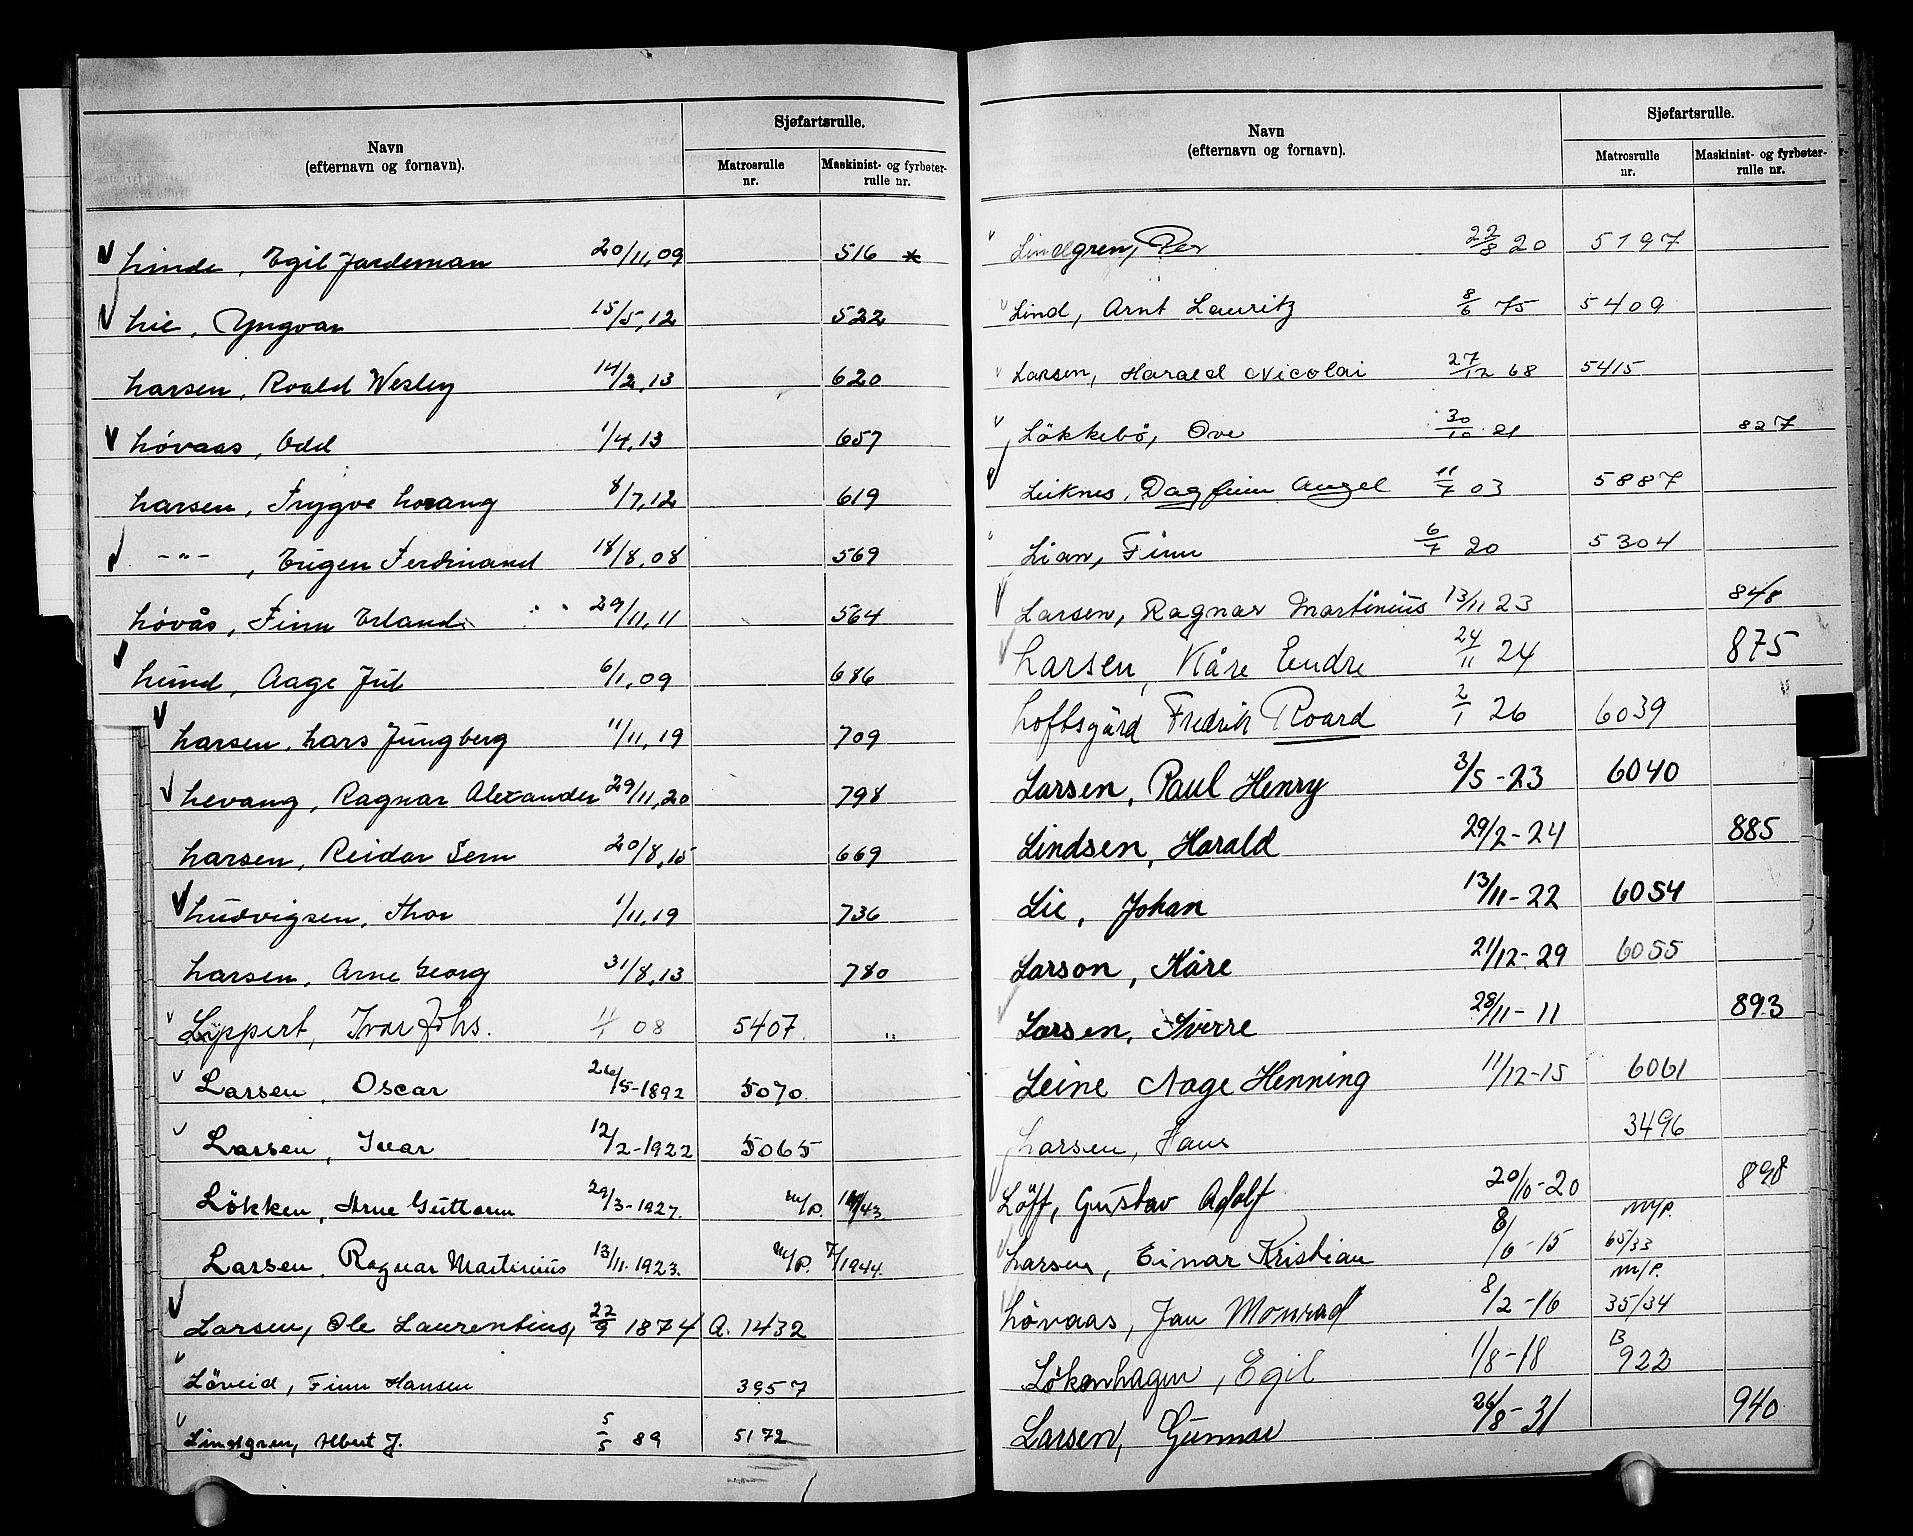 Navn
(efternavn og fornavn).
Sjøfartsrulle.
Matrosrulle nr.
Maskinist- og fyrbøter-rulle nr.
Linde, Egil Jardeman 20/11,09 516 *
Lie, Yngvar 15/5,12 522
Larsen, Roald Wesley 14/2,13 620
Løvaas, Odd 1/4,13 657
Larsen, Trygve Lorang 8/7,12 619
-"-, Eugen Ferdinand 18/8,08 569
Løvås, Finn Erland 29/11,11 564
Lund, Aage Jul 6/1,09 686
Larsen, Lars Jungberg 11/11,19 709
Levang, Ragnar Alexander 29/11,20 798
Larsen, Reidar Sem 20/8,15 669
Ludvigsen, Thor 1/11,19 736
Larsen, Arne Georg 31/8,13 780
Lippert, Ivar Johs. 08 5407
Larsen, Oscar 26/5-1892 5070
Larsen, Ivar 12/2-1922 5065
Løkken, Arne Guttorm 29/3-1927. m/p. /43
Larsen, Ragnar Martinius 13/11-1923. m/p. 7/1944.
Larsen, Ole Laurentius, 22/9 1874 A. 1432
Löveid, Finn Hansen 3957
Lindgren, Albert J. 5/5 89 5172
Navn
(efternavn og fornavn).
Sjøfartsrulle.
Matrosrulle nr.
Maskinist- og fyrbøter-rulle nr.
Lindgren, Per 22/8 20 5197
Lind, Arnt Lauritz 8/6 75 5409
Larsen, Harald Nicolai 27/12 68 5415
Løkkebø, Ove 30/10 21 827
Leiknes, Dagfinn Angel 11/7 03 5887
Lian, Finn 6/7 20 5304
Larsen, Ragnar Martinius 13/11 23 848
Larsen, Kåre Endre 24/11 24 875
Loftsgård Fredrik Roard 2/1 26 6039
Larsen, Paul Henry 3/5-23 6040
Lindsen, Harald 29/2-24 885
Lie, Johan 13/11-22 6054
Larson, Kåre 21/12-29 6055
Larsen, Sverre 28/11-11 893
Leine Aage Henning 11/12-15 6061
Larsen, Hans 3496
Löff, Gustav Adolf 20/10-20 898
Larsen, Einar Kristian 8/6-15 m/p. 65/33
Løvaas, Jan Monrad 8/2-16 m/p. 35/34
Løkenhagen, Egil 1/8-18 B 922
Larsen, Gunnar 26/8-31 940